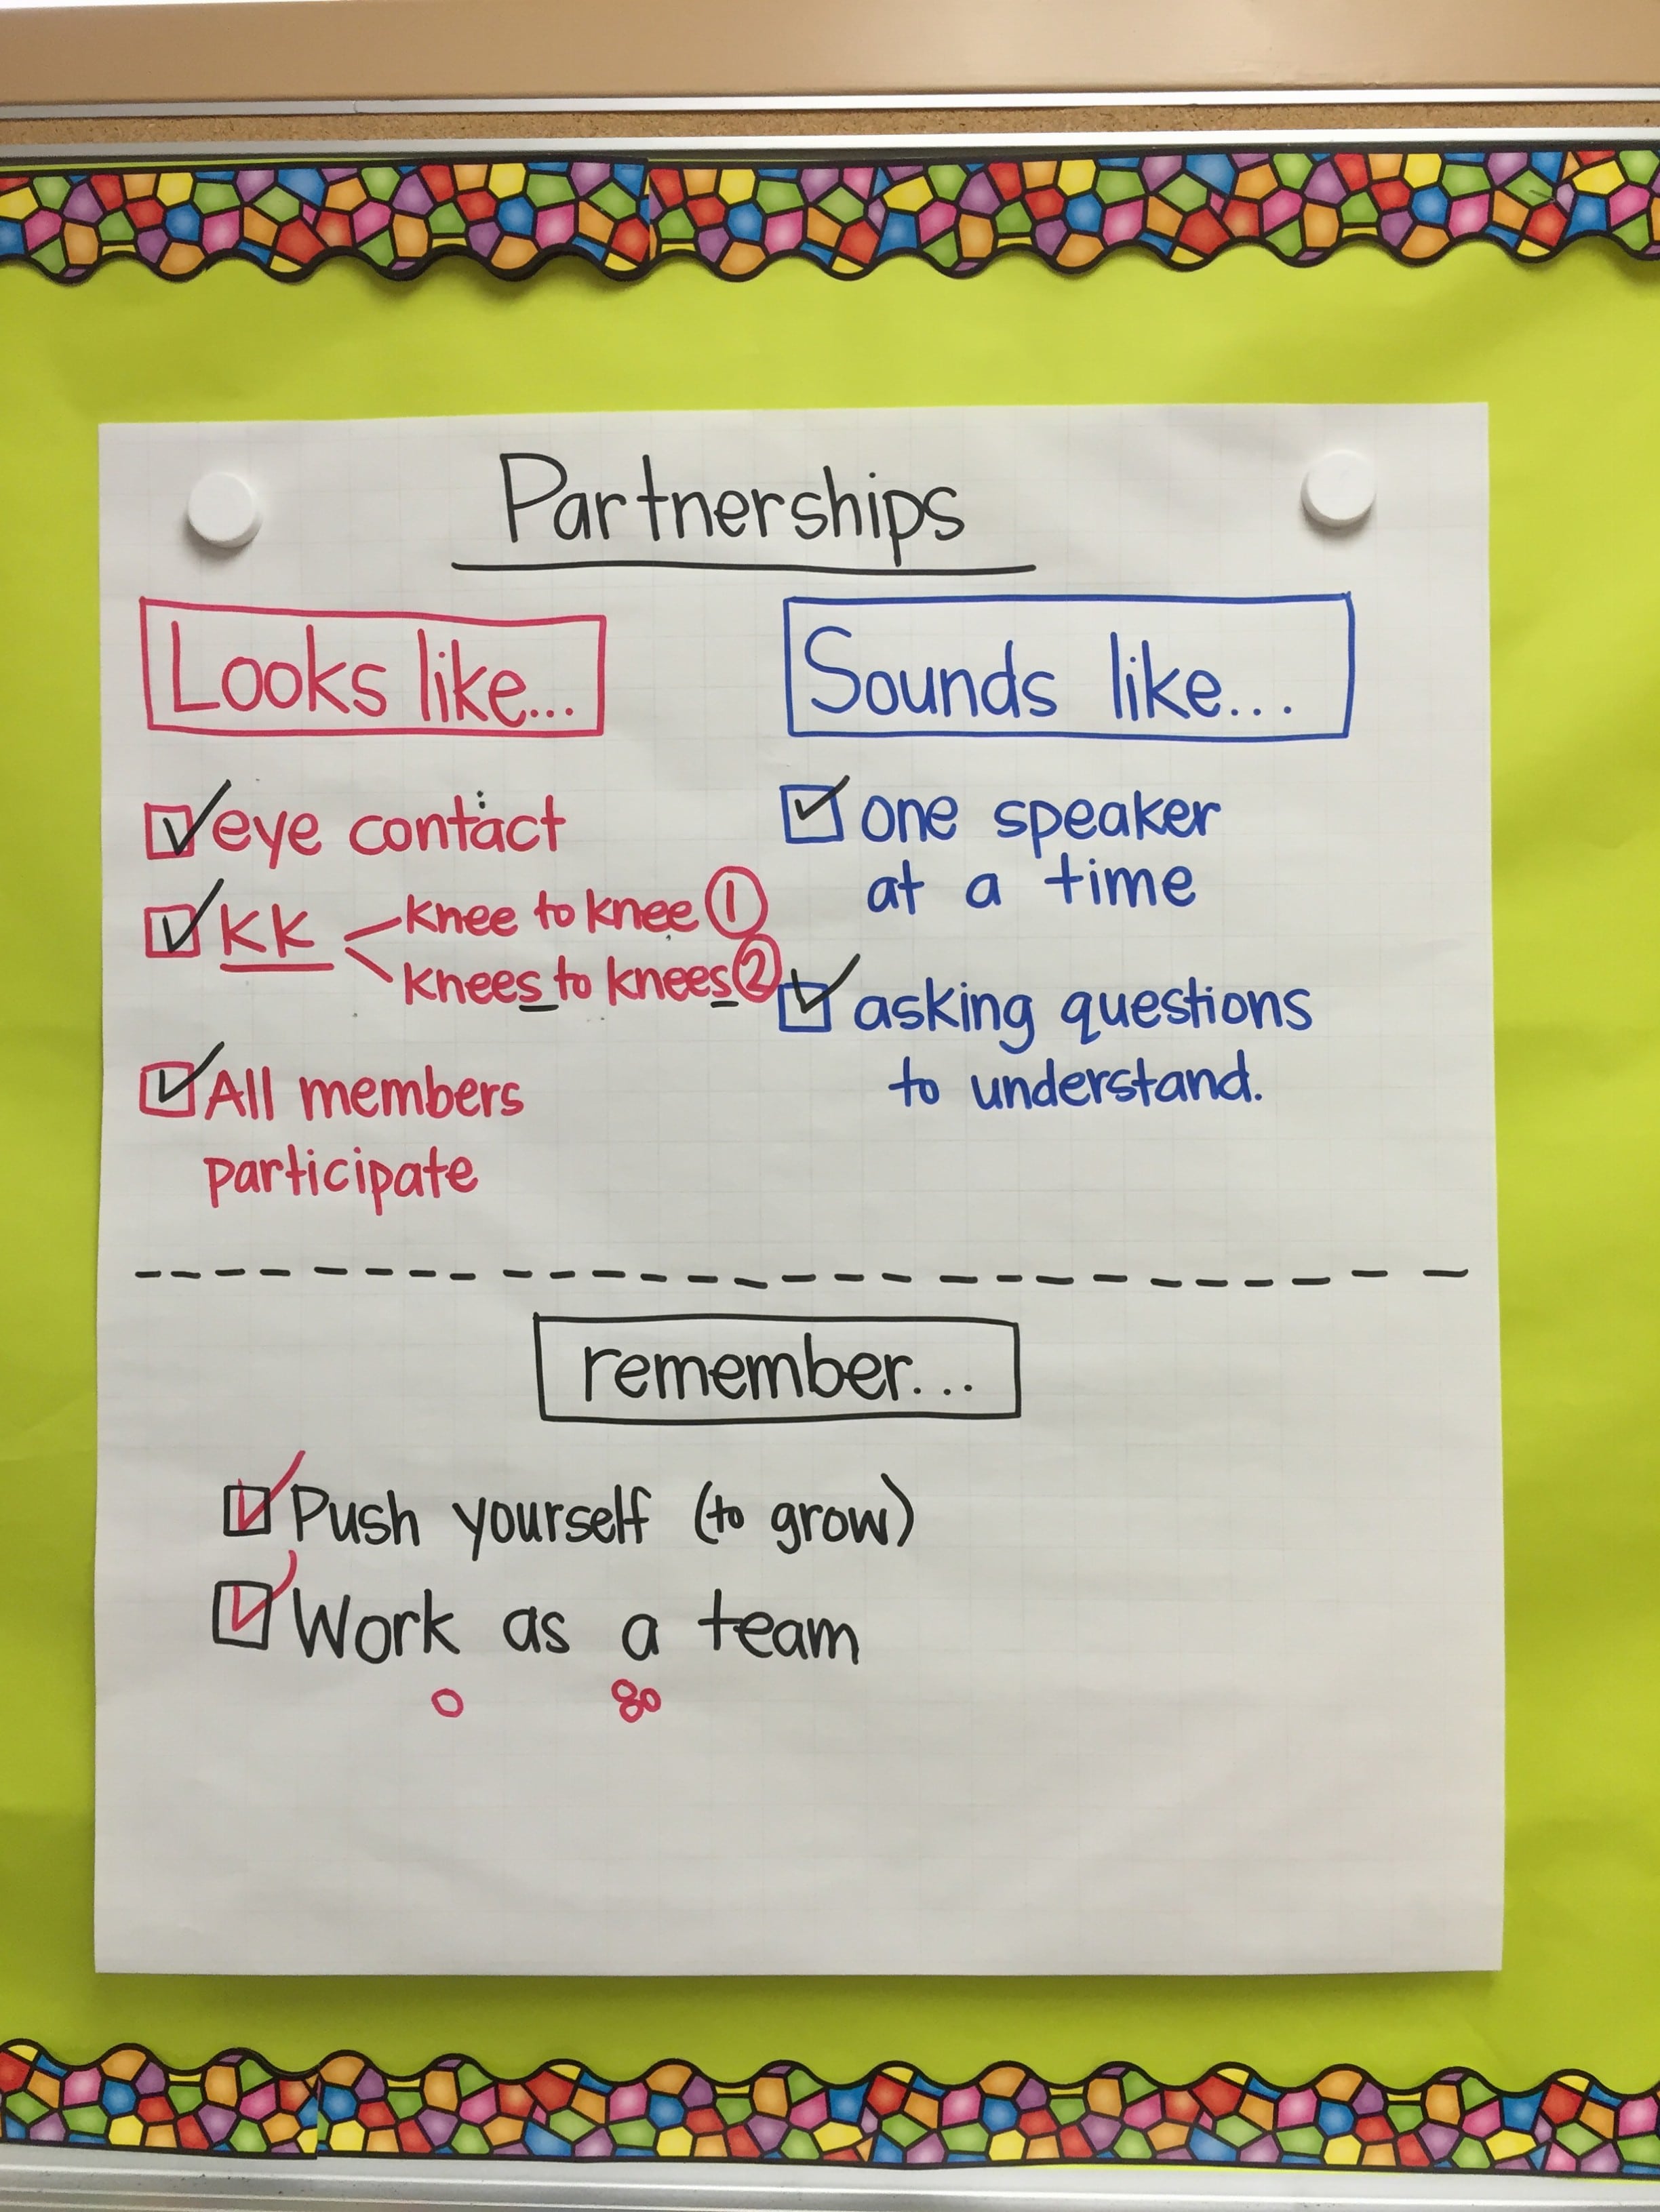 Partnerships
Looks like...
eye contact
KK
knee to knee 1
knees to knees 2
All members
participate
Sounds like...
one speaker
at a time
asking questions
to understand.
remember...
Push yourself (to grow)
Work as a team